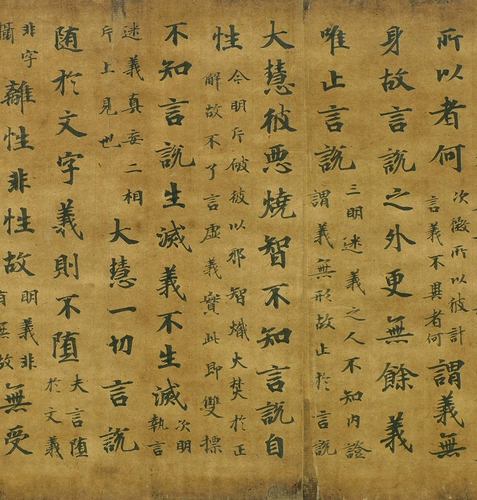 所以者何次徵所以彼計言義不異者何謂義無
身故言説之外更無餘義
唯止言説三明迷義之人不知内證謂義無形故止於言説
大慧彼惡燒智不知言説自
性今明斥破彼以邪智熾火焚於正解故不了言虛義實此即雙標
不知言説生滅義不生滅次明執言
迷義真妄二相斥上見也大慧一切言説
随於文字義則不堕夫言堕於文義
非字離性非性故明義非有無故無受